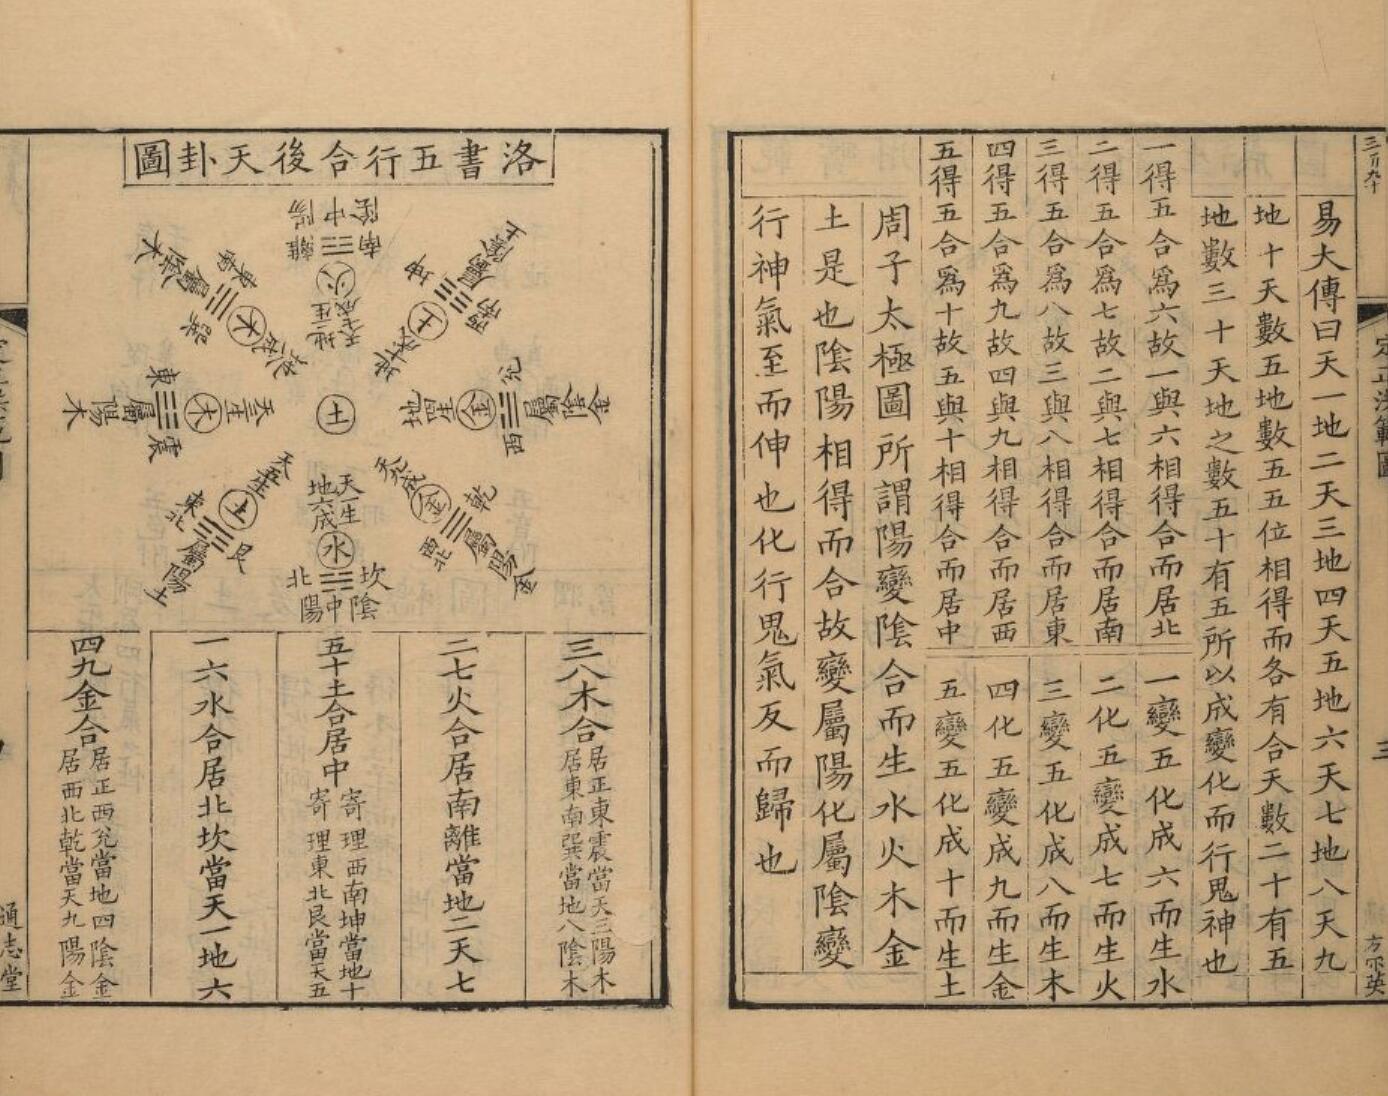 易大傳曰天一地二天三地四天五地六天七地八天九
地十天數五地數五五位相得而各有合天數二十有五
地數三十天地之數五十有五所以成變化而行鬼神也
一得五合爲六故一與六相得合而居北
一變五化成六而生水
二得五合爲七故二與七相得合而居南
二化五變成七而生火
三得五合爲八故三與八相得合而居東
三變五化成八而生木
四得五合爲九故四與九相得合而居西
四化五變成九而生金
五得五合爲十故五與十相得合而居中
五變五化成十而生土
周子太極圖所謂陽變陰合而生水火木金
土是也陰陽相得而合故變屬陽化屬陰變
行神氣至而伸也化行鬼氣反而歸也
定正洪範圖
三
洛書五行合後天卦圖
陰中陽
南
離
火
地二生
天七成
坤
西南
屬陰土
土
地十成
兌
西
屬陰金
金
地四生
乾
西北
屬陽金
金
天九成
天一生
地六成
水
坎
北
陰中陽
艮
東北
屬陽土
土
天五生
震
東
屬陽木
木
天三生
巽
東南
屬陰木
木
地八成
土
三八木合
居正東震當天三陽木
居東南巽當地八陰木
二七火合居南離當地二天七
五十土合居中
寄理西南坤當地十
寄理東北艮當天五
一六水合居北坎當天一地六
四九金合
居正西兌當地四陰金
居西北乾當天九陽金
通志堂